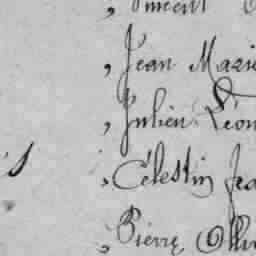 , Vincent
, Jean Marie
, Julien Léon
, Célestin Jea
, Pierre Olliv